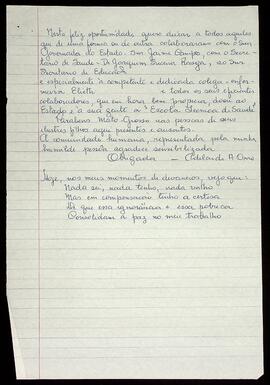 Nesta feliz oportunidade, quero deixar a todos aqueles
que de uma forma ou de outra colaboraram com o Snr.
Governador do Estado. Snr Jaime Campos, com o Secre-
tario de Saúde - Dr Joaquim Araujo, ao Snr
Secretario de Educação
e especialmente à competente e dedicada colega - enfer-
meira Elith e todos os seus eficientes
colaboradores, que em hora bem propicia, doam ao
Estado e à sua gente a "Escola Técnica de Saúde"
Parabens Mato Grosso nas pessoas de seus
ilustres filhos aqui presentes e ausentes.
A comunidade humana, representada pela minha
humilde pessoa agradece sensibilizada
Obrigada - Adelaide A. Orro
Hoje, nos meus momentos de devaneios, vejo que:
Nada sei, nada tenho, nada valho
Mas em compensação tenho a certeza
Da que essa ignorância e essa pobreza
Consolidam a paz no meu trabalho